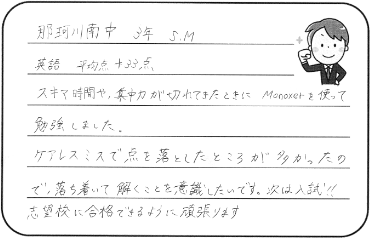 那珂川南中 3年 S.M
英語 平均点+33点
スキマ時間や、集中力が切れてきたときに Monoxerを使って
勉強しました。
ケアレスミスで点を落としたところが多かったの
で、落ち着いて解くことを意識したいです。次は入試!!
志望校に合格できるように頑張ります